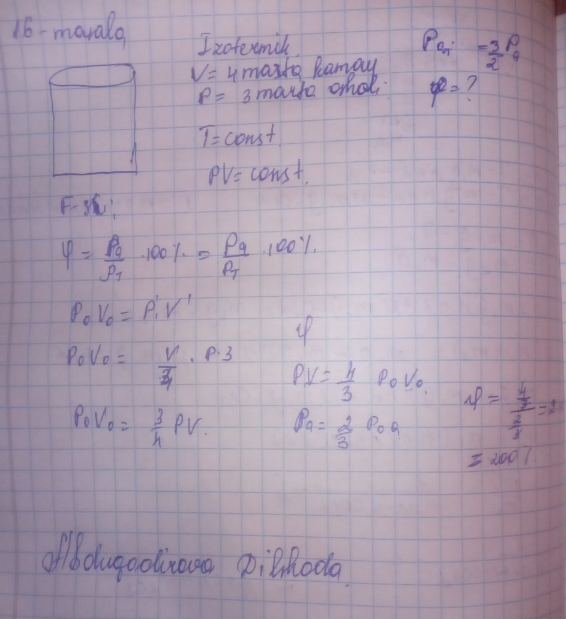 16-masala
Izotermik.
V = 4 marta kamay
P = 3 marta oshdi.
T = const
PV = const.
P = 3/2 P
φ = ?
φ = Pa/PT · 100% = Pa/PT · 100%.
P₀V₀ = P'V'
P₀V₀ = V/4 · P·3
P₀V₀ = 3/4 PV.
φ
PV = 4/3 P₀V₀.
Pa = 2/3 P₀a
= 200%
Abdugadirova Dilshoda.